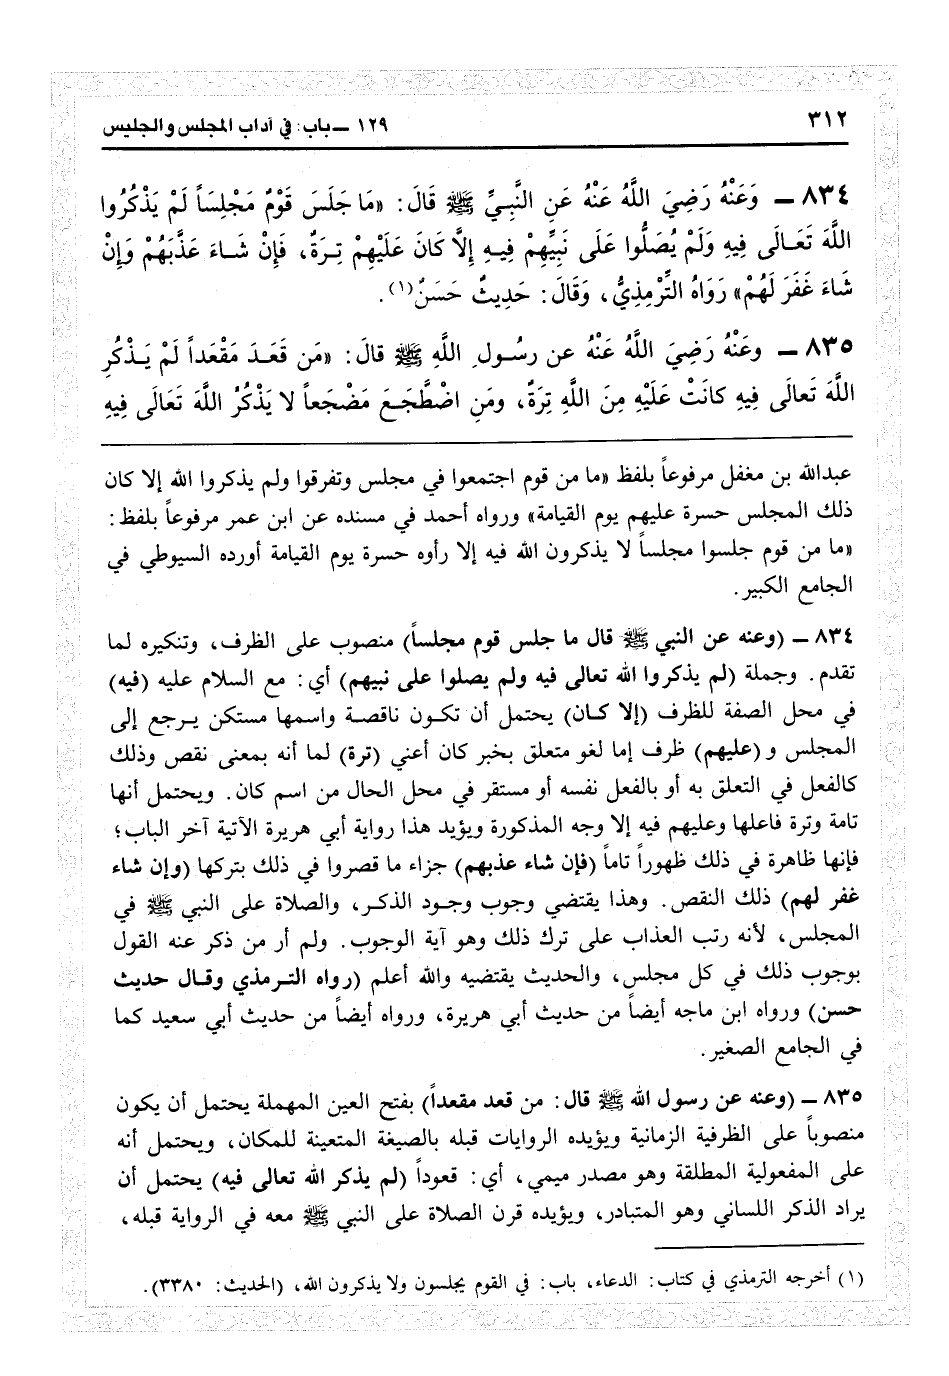 ٣١٢
١٢٩ ــ باب: في آداب المجلس والجليس
٨٣٤ ــ وَعَنْهُ رَضِيَ اللَّهُ عَنْهُ عَنِ النَّبِيِّ ﷺ قَالَ: «مَا جَلَسَ قَوْمٌ مَجْلِسَاً لَمْ يَذْكُرُوا
اللَّهَ تَعَالَى فِيهِ وَلَمْ يُصَلُّوا عَلَى نَبِيِّهِمْ فِيهِ إِلَّا كَانَ عَلَيْهِمْ تِرَةٌ، فَإِنْ شَاءَ عَذَّبَهُمْ وَإِنْ
شَاءَ غَفَرَ لَهُمْ» رَوَاهُ التِّرْمِذِيُّ، وَقَالَ: حَدِيثٌ حَسَنٌ(١).
٨٣٥ ــ وعَنْهُ رَضِيَ اللَّهُ عَنْهُ عن رسُولِ اللَّهِ ﷺ قالَ: «مَن قَعَدَ مَقْعَداً لَمْ يَذْكُرِ
اللَّهَ تَعالَى فِيهِ كانَتْ عَلَيْهِ مِنَ اللَّهِ تِرَةٌ، ومَنِ اضْطَّجَعَ مَضْجَعاً لا يَذْكُرُ اللَّهَ تَعَالَى فِيهِ
عبدالله بن مغفل مرفوعاً بلفظ «ما من قوم اجتمعوا في مجلس وتفرقوا ولم يذكروا الله إلا كان
ذلك المجلس حسرة عليهم يوم القيامة» ورواه أحمد في مسنده عن ابن عمر مرفوعاً بلفظ:
«ما من قوم جلسوا مجلساً لا يذكرون الله فيه إلا رأوه حسرة يوم القيامة أورده السيوطي في
الجامع الكبير.
٨٣٤ ــ (وعنه عن النبي ﷺ قال ما جلس قوم مجلساً) منصوب على الظرف، وتنكيره لما
تقدم. وجملة (لم يذكروا الله تعالى فيه ولم يصلوا على نبيهم) أي: مع السلام عليه (فيه)
في محل الصفة للظرف (إلا كان) يحتمل أن تكون ناقصة واسمها مستكن يرجع إلى
المجلس و (عليهم) ظرف إما لغو متعلق بخبر كان أعني (ترة) لما أنه بمعنى نقص وذلك
كالفعل في التعلق به أو بالفعل نفسه أو مستقر في محل الحال من اسم كان. ويحتمل أنها
تامة وترة فاعلها وعليهم فيه إلا وجه المذكورة ويؤيد هذا رواية أبي هريرة الآتية آخر الباب؛
فإنها ظاهرة في ذلك ظهوراً تاماً (فإن شاء عذبهم) جزاء ما قصروا في ذلك بتركها (وإن شاء
غفر لهم) ذلك النقص. وهذا يقتضي وجوب وجود الذكر، والصلاة على النبي ﷺ في
المجلس، لأنه رتب العذاب على ترك ذلك وهو آية الوجوب. ولم أر من ذكر عنه القول
بوجوب ذلك في كل مجلس، والحديث يقتضيه والله أعلم (رواه الترمذي وقال حديث
حسن) ورواه ابن ماجه أيضاً من حديث أبي هريرة، ورواه أيضاً من حديث أبي سعيد كما
في الجامع الصغير.
٨٣٥ ــ (وعنه عن رسول الله ﷺ قال: من قعد مقعداً) بفتح العين المهملة يحتمل أن يكون
منصوباً على الظرفية الزمانية ويؤيده الروايات قبله بالصيغة المتعينة للمكان، ويحتمل أنه
على المفعولية المطلقة وهو مصدر ميمي، أي: قعوداً (لم يذكر الله تعالى فيه) يحتمل أن
يراد الذكر اللساني وهو المتبادر، ويؤيده قرن الصلاة على النبي ﷺ معه في الرواية قبله،
(١) أخرجه الترمذي في كتاب: الدعاء، باب: في القوم يجلسون ولا يذكرون الله، (الحديث: ٣٣٨٠).